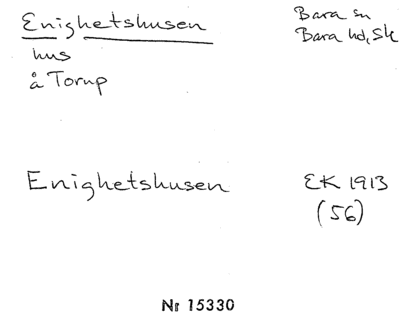 Enighetshusen
Bara sn
Bara hd, Sk
hus
å Torup
Enighetshusen
EK 1913
(56)
Nr 15330